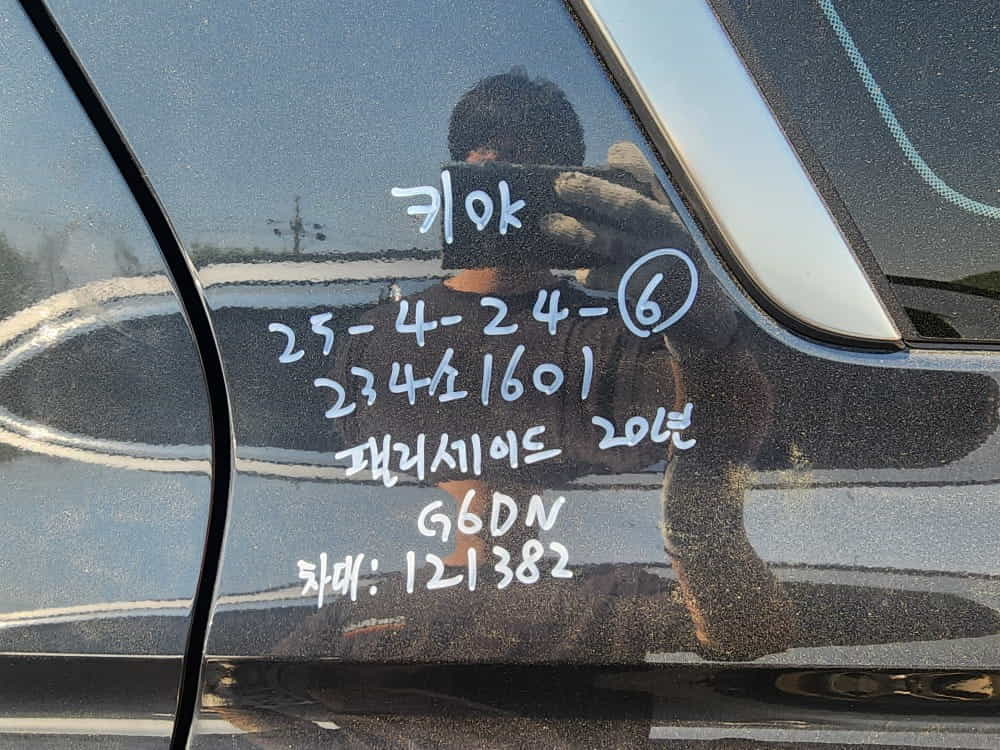 키야
25-4-24-⑥
234소1601
팰리세이드 20년
G6DN
차대: 121382